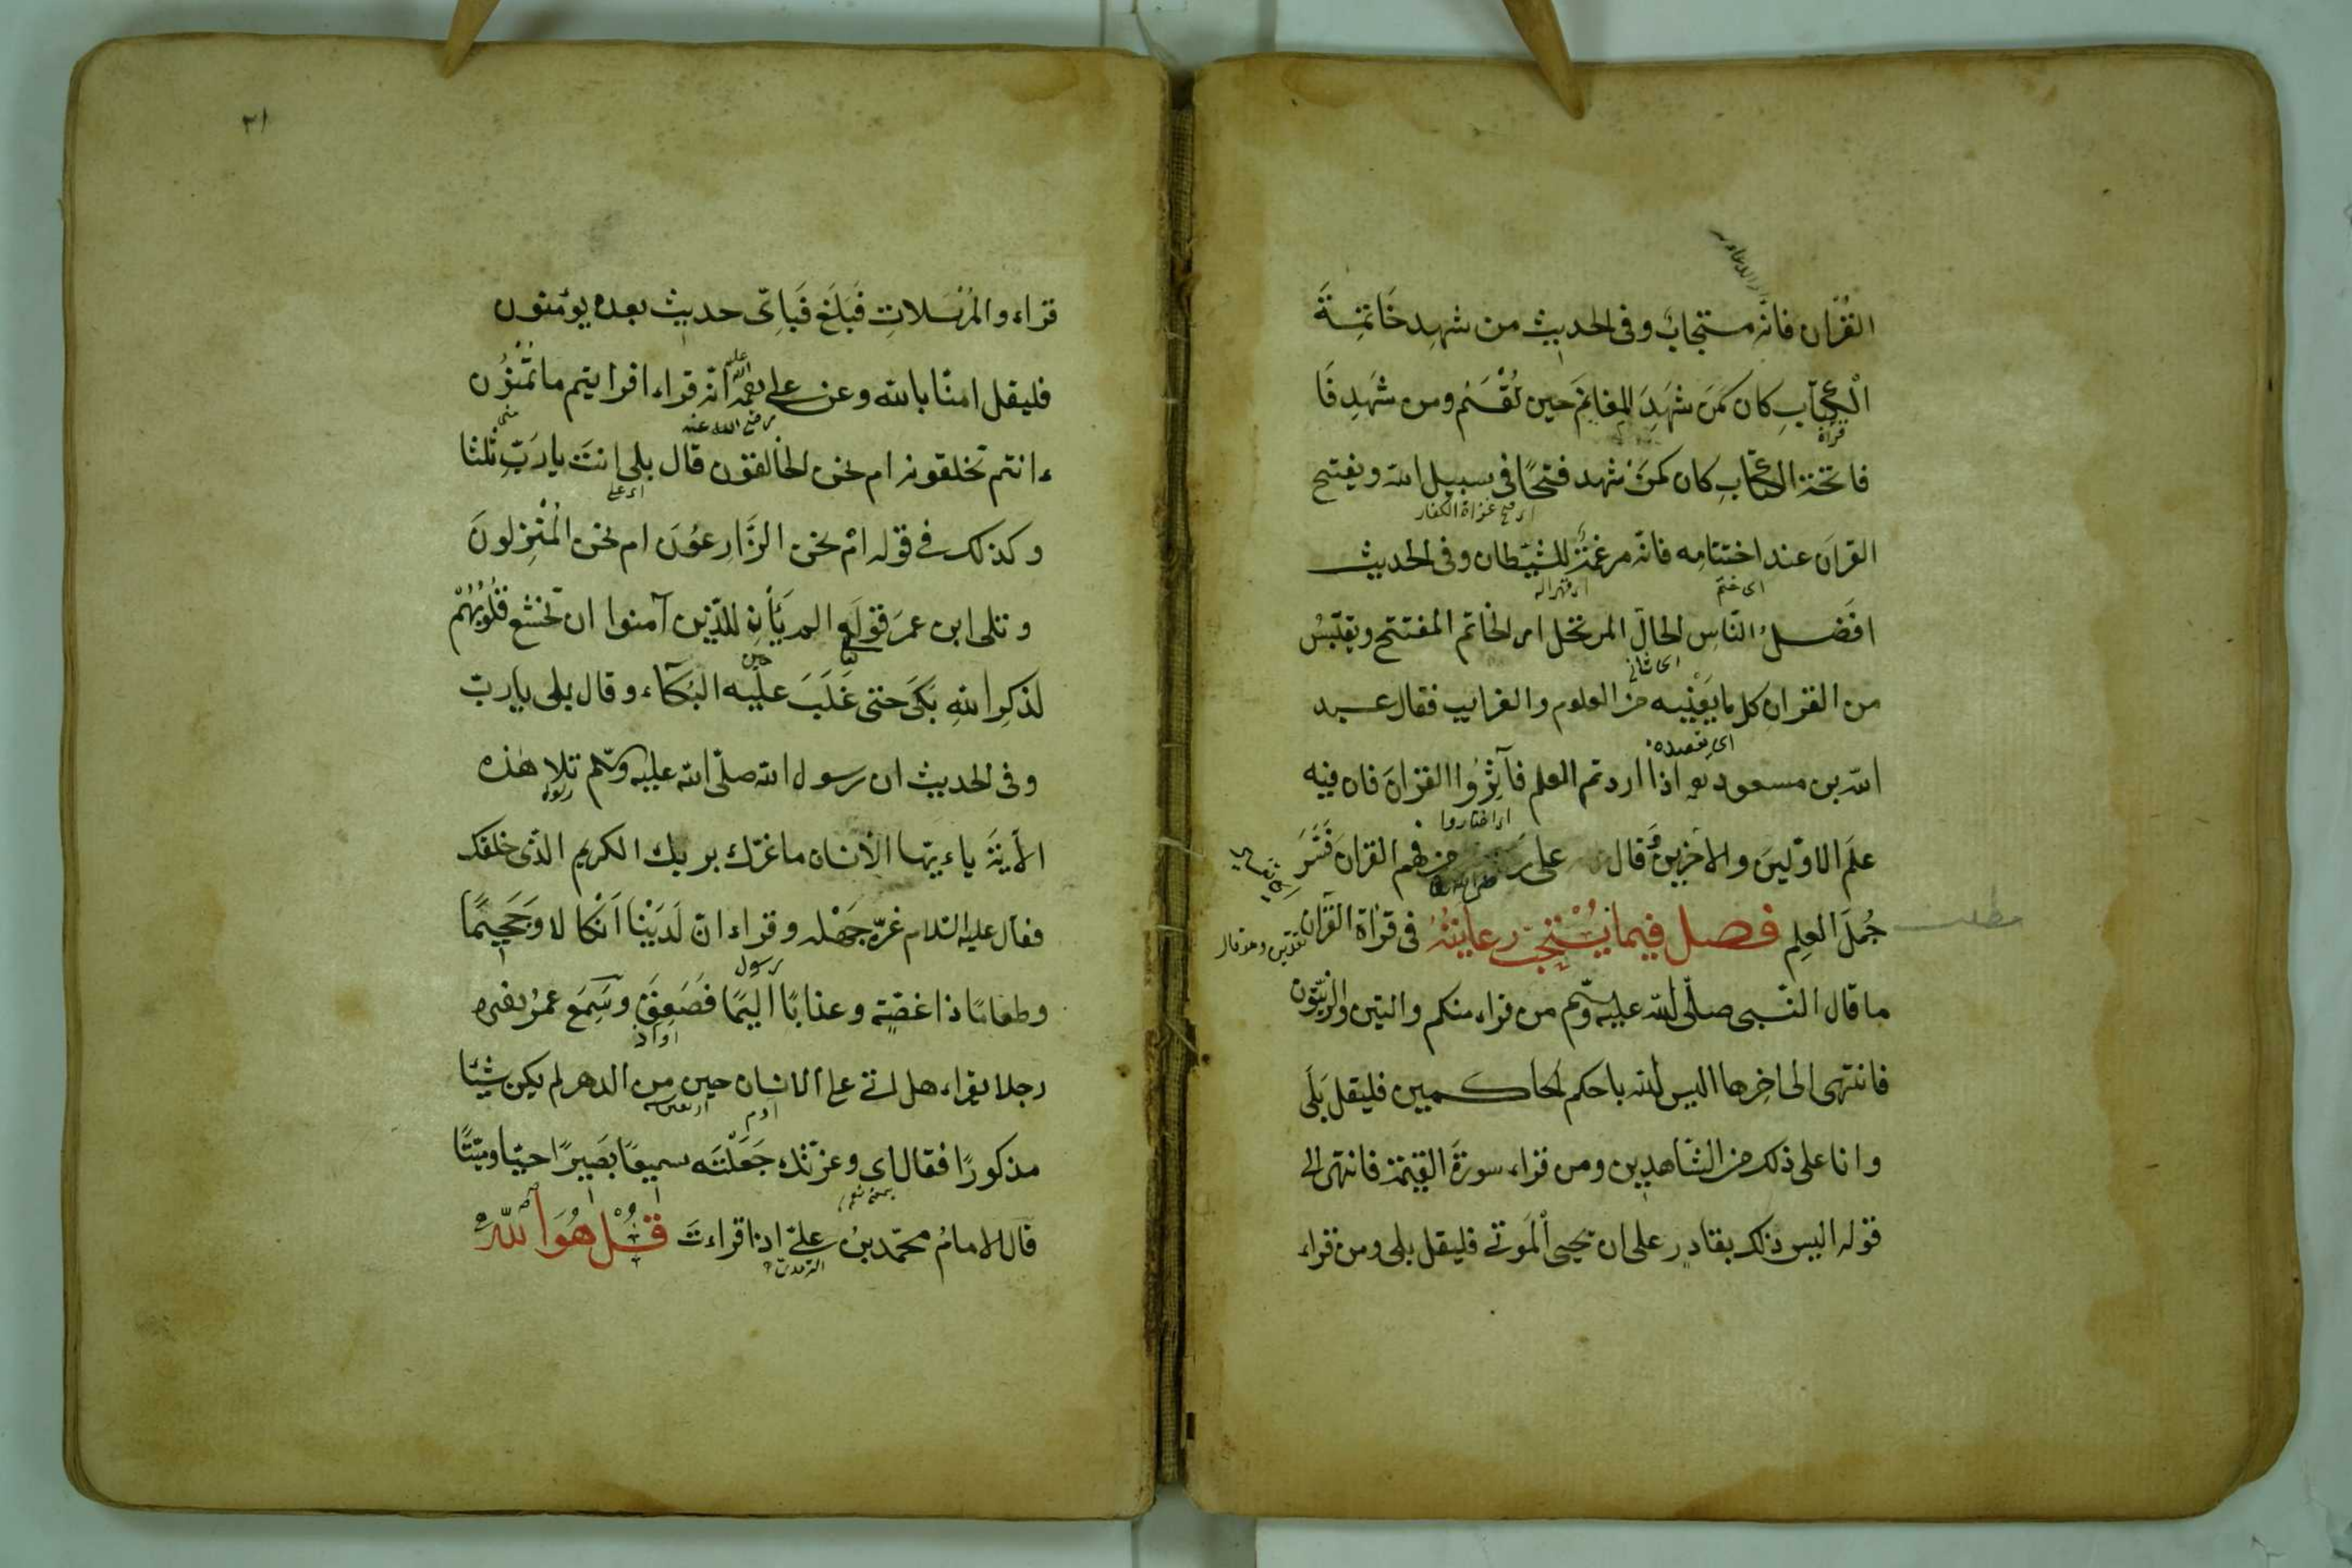 القرآن فانه مستجاب وفى الحديث من شهد خَاتمِةَ
الْكِتَابِ كان كَمَن شَهِدَ المغانِمَ حين تُقْسَم ومن شَهِد فَا
قراة
فاتحة الكتابِ كان كمَنْ شهد فتحًا فى سبيل الله ويفتتح
القرآن عند اختتامه فانه مرغمة للشيطان وفى الحديث
اى ختم
افضل الناس الحال المرتحل اى الخاتم المفتتح ويقتبس
من القرآن كل ما يعنيه من العلوم والغرايب فقال عبد
اى يقصده
الله بن مسعود رضه اذا اردتم العلم فآثِرُوا القرآن فان فيه
اى اختاروا
علم الاولين والاخرين وقال على من فهم القرآن فَسَّرَ
جُمَلَ العِلم فصل فيما يُسْتحبّ رعايتُهُ فى قراة القرآن
مطلب
ما قال النبى صلّى الله عليه وسلم من قراء منكم والتين والزيتون
فانتهى الى اخِرها اليس الله باحكم الحاكمين فليقل بَلَى
وانا على ذلك من الشاهدين ومن قراء سورة القيمة فانتهى الى
قوله اليس ذلك بقادر على ان يحيى الْمَوتى فليقل بلى ومن قراء
٢١
قراء والمُرْسَلاتِ فَبَلَغ فَبِاَىّ حديث بعده يؤمنون
فليقل امنّا بالله وعن على رضى الله عنه انّه قراء افرايتم ما تُمْنُون
ءانتم تخلقونه ام نحن الخالقون قال بلى انت يا رَبِّ ثلثا
وكذلك فى قوله ام نحن الزَّارِعوُنَ ام نحن الْمُنْزِلونَ
وتلى ابن عمرَ قوله الم يَأْنِ للّذين آمنوا ان تخشع قُلُوبُهُمْ
لذكرِ اللهِ بَكَى حتى غَلَبَ عليه البُكآء وقال بلى يا ربّ
وفى الحديث ان رسول الله صلّى الله عليه وسلّم تلا هذه
الأيَةَ ياءيّها الأنسان ما غرّك بربك الكريم الذى خلقك
فقال عليه السلام غرّه جَهْله وقراء انّ لَدَيْنا اَنْكالا وجَحيمًا
رسول
وطعامًا ذا غصّة وعذابًا اليمًا فصَعِقَ وسَمِعَ عمرُ رضه
رجلا يقراء هل اتى على الانسان حين من الدهر لم يكن شيئا
ادم
مذكورًا فقال اى وعزتك جَعَلْتَه سميعًا بَصيرًا حيّا وميّتًا
قال الامامُ محمّد بنُ علىّ اذا قراءتَ قُلْ هُوَ الله
الترمذى